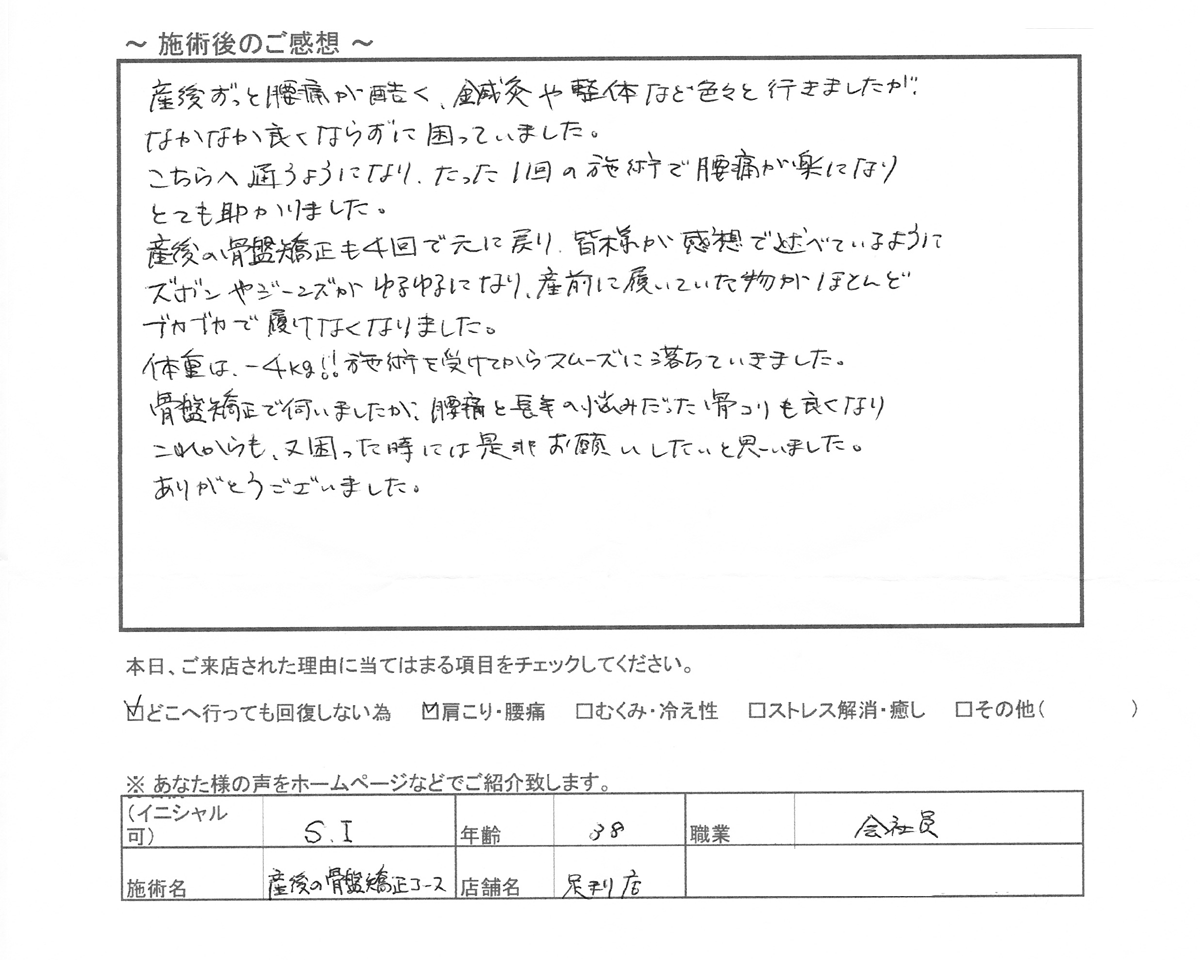 ～ 施術後のご感想 ～
産後ずっと腰痛が酷く、鍼灸や整体など色々と行きましたが、
なかなか良くならずに困っていました。
こちらへ通うようになり、たった1回の施術で腰痛が楽になり
とても助かりました。
産後の骨盤矯正も4回で元に戻り、皆様が感想で述べているように
ズボンやジーンズがゆるゆるになり、産前に履いていた物がほとんど
ブカブカで履けなくなりました。
体重は、-4kg!! 施術を受けてからスムーズに落ちていきました。
骨盤矯正で伺いましたが、腰痛と長年の悩みだった肩コリも良くなり
これからも、又困った時には是非お願いしたいと思いました。
ありがとうございました。
本日、ご来店された理由に当てはまる項目をチェックしてください。
☑どこへ行っても回復しない為 ☑肩こり・腰痛 □むくみ・冷え性 □ストレス解消・癒し □その他( )
※ あなた様の声をホームページなどでご紹介致します。
(イニシャル可) S.I 年齢 38 職業 会社員
施術名 産後の骨盤矯正コース 店舗名 足利店